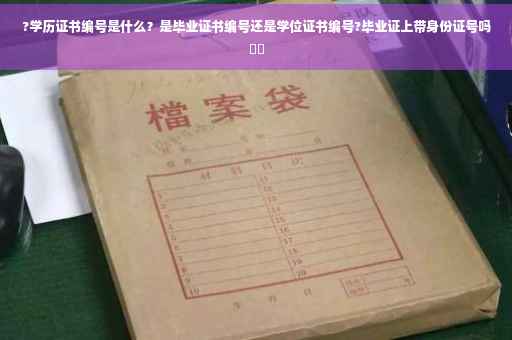 ?学历证书编号是什么？是毕业证书编号还是学位证书编号?毕业证上带身份证号吗
檔案袋
材料目次
1
2
3
4
5
6
7
8
9
10
11
12
13
14
15
16
17
18
19
20
年 月 日